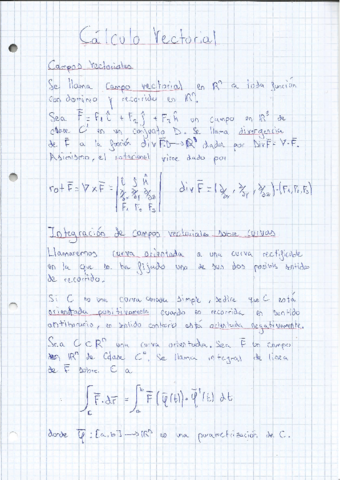 Cálculo Vectorial
Campos vectoriales
Se llama campo vectorial en ℝⁿ a toda función
con dominio y recorrido en ℝⁿ.
Sea F̄ = F₁ î + F₂ ĵ + F₃ k̂ un campo en ℝⁿ de
clase C¹ en un conjunto D. Se llama divergencia
de F̄ a la función div F̄: D → ℝ dada por Div F̄ = ∇·F̄.
Asimismo, el rotacional viene dado por
rot F̄ = ∇ × F̄ =
div F̄ =
Integración de campos vectoriales sobre curvas
Llamaremos curva orientada a una curva rectificable
en la que se ha fijado uno de sus dos posibles sentidos
de recorrido.
Si C es una curva cerrada simple, se dice que C está
orientada positivamente cuando es recorrida en sentido
antihorario, en sentido contrario está orientada negativamente.
Sea C ⊂ ℝⁿ una curva orientada. Sea F̄ un campo
en ℝⁿ de clase C⁰. Se llama integral de línea
de F̄ sobre C a
∫_C F̄ · dr̄ = ∫_a^b F̄(φ̄(t)) · φ̄'(t) dt
donde φ̄: [a, b] → ℝⁿ es una parametrización de C.